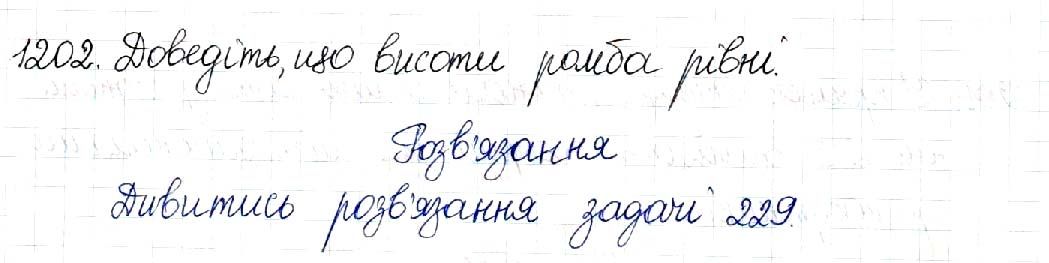 1202. Доведіть, що висоти ромба рівні.
Розв'язання
Дивитись розв'язання задачі 229.